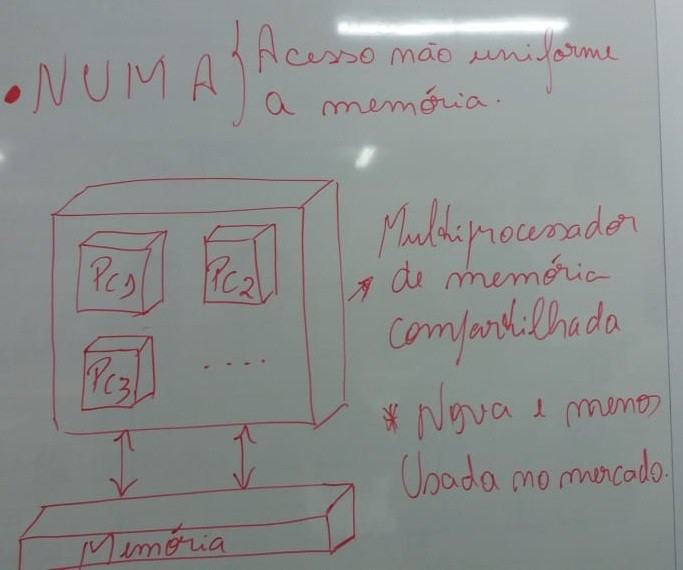 • NUMA } Acesso não uniforme
a memória.
PC1
PC2
PC3
....
Multiprocessador
de memória
compartilhada
* Nova e menos
Usada no mercado.
Memória